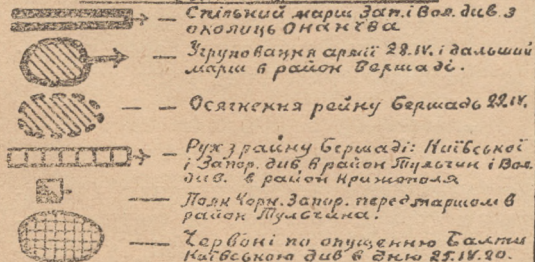 Спільний марш Зап. і Вол. див. з
околиць Онаніва
Угруповання армії 28.IV. і дальший
марш в район Бершаді.
Осягнення рейну Бершадь 29.IV.
Рух з району Бершаді: Київської
і Запор. див. в район Тульчин і Вол.
див. в район Крижополя
Полк Чорн. Запор. перед маршом в
район Тульчина.
Червоні по опущенню Балти
Київською див. в дню 25.IV.20.